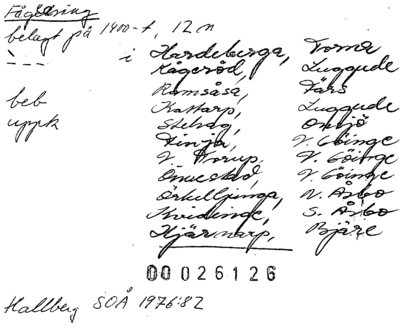 Fågelsång
belagt på 1400-t, 12 n
i Hardeberga, Torna
Kågeröd, Luggude
Ramsåsa, Färs
beb Kattarp, Luggude
uppk Stehag, Onsjö
Finja, V. Göinge
V. Torup, V. Göinge
Önnestad, V. Göinge
Örkelljunga, N. Åsbo
Kvidinge, S. Åsbo
Hjärnarp, Bjäre
00026126
Hallberg SOÅ 1976:82